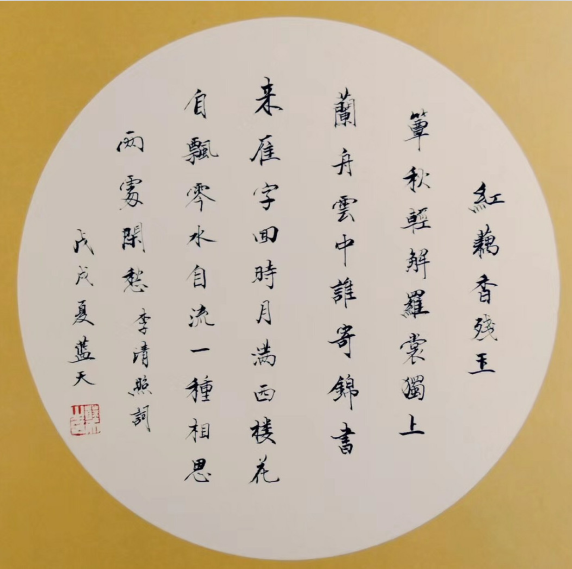 紅藕香残玉
簟秋輕解羅裳獨上
蘭舟雲中誰寄錦書
来雁字回時月满西楼花
自飄零水自流一種相思
两處閑愁 李清照詞
戊戌夏蓝天